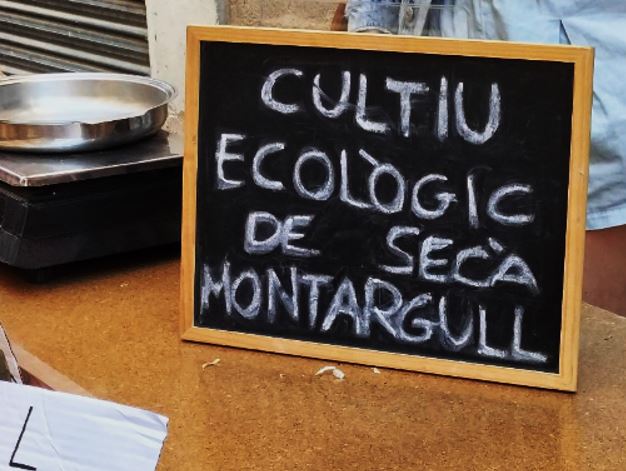 CULTIU
ECOLÒGIC
DE SECÀ
MONTARGULL
L